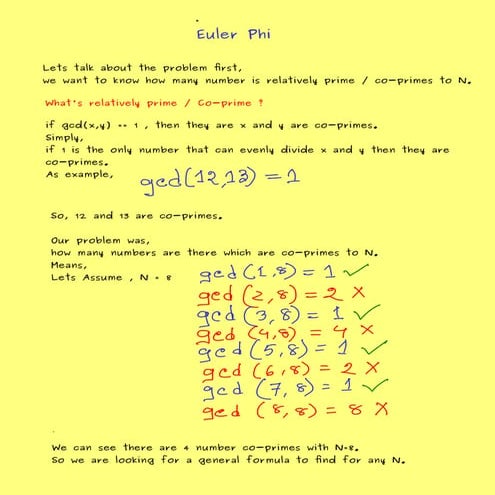 Euler Phi
Lets talk about the problem first,
we want to know how many number is relatively prime / co-primes to N.
What's relatively prime / Co-prime ?
if gcd(x,y) == 1 , then they are x and y are co-primes.
Simply,
if 1 is the only number that can evenly divide x and y then they are
co-primes.
As example,
gcd(12,13) = 1
So, 12 and 13 are co-primes.
Our problem was,
how many numbers are there which are co-primes to N.
Means,
Lets Assume , N = 8
gcd (1,8) = 1 ✓
gcd (2,8) = 2 X
gcd (3,8) = 1 ✓
gcd (4,8) = 4 X
gcd (5,8) = 1 ✓
gcd (6,8) = 2 X
gcd (7,8) = 1 ✓
gcd (8,8) = 8 X
We can see there are 4 number co-primes with N=8.
So we are looking for a general formula to find for any N.